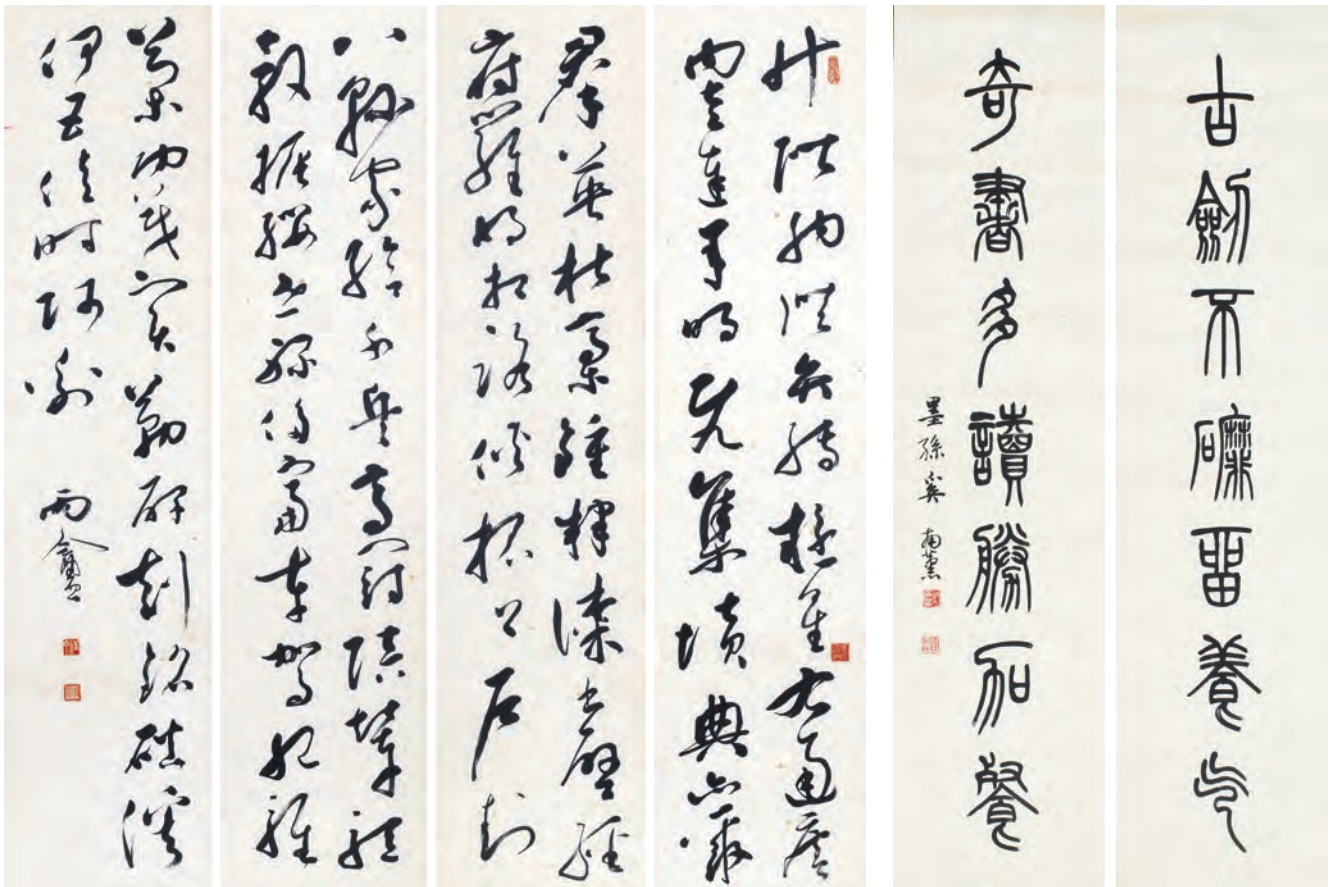 古劍不磨畱養气
奇書多讀勝加餐
墨孫奚南薰
升階納陛弁轉疑星右通廣
內左達承明既集墳典亦聚
群英杜稾鍾隸漆書壁經
府羅將相路俠槐卿戶封
八縣家給千兵高冠陪輦驅
轂振纓世祿侈富車駕肥輕
策功茂實勒碑刻銘磻溪
伊尹佐時阿衡 雨盦